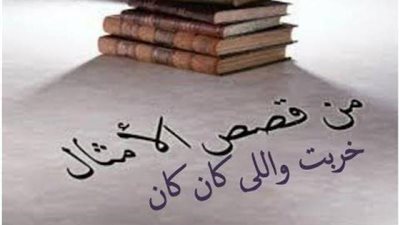 من قصص الأمثال
خربت واللى كان كان